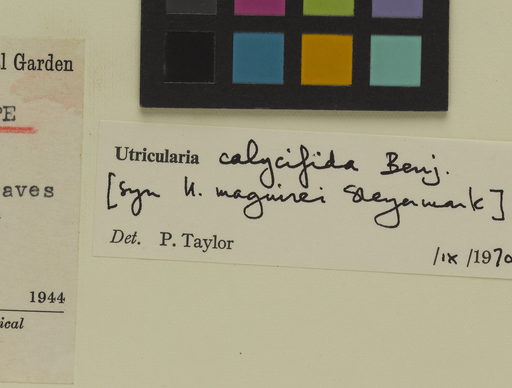 l Garden
PE
aves
1944
ical
Utricularia calycifida Benj.
[syn U. maguirei Steyermark]
Det. P. Taylor
/ix /1970